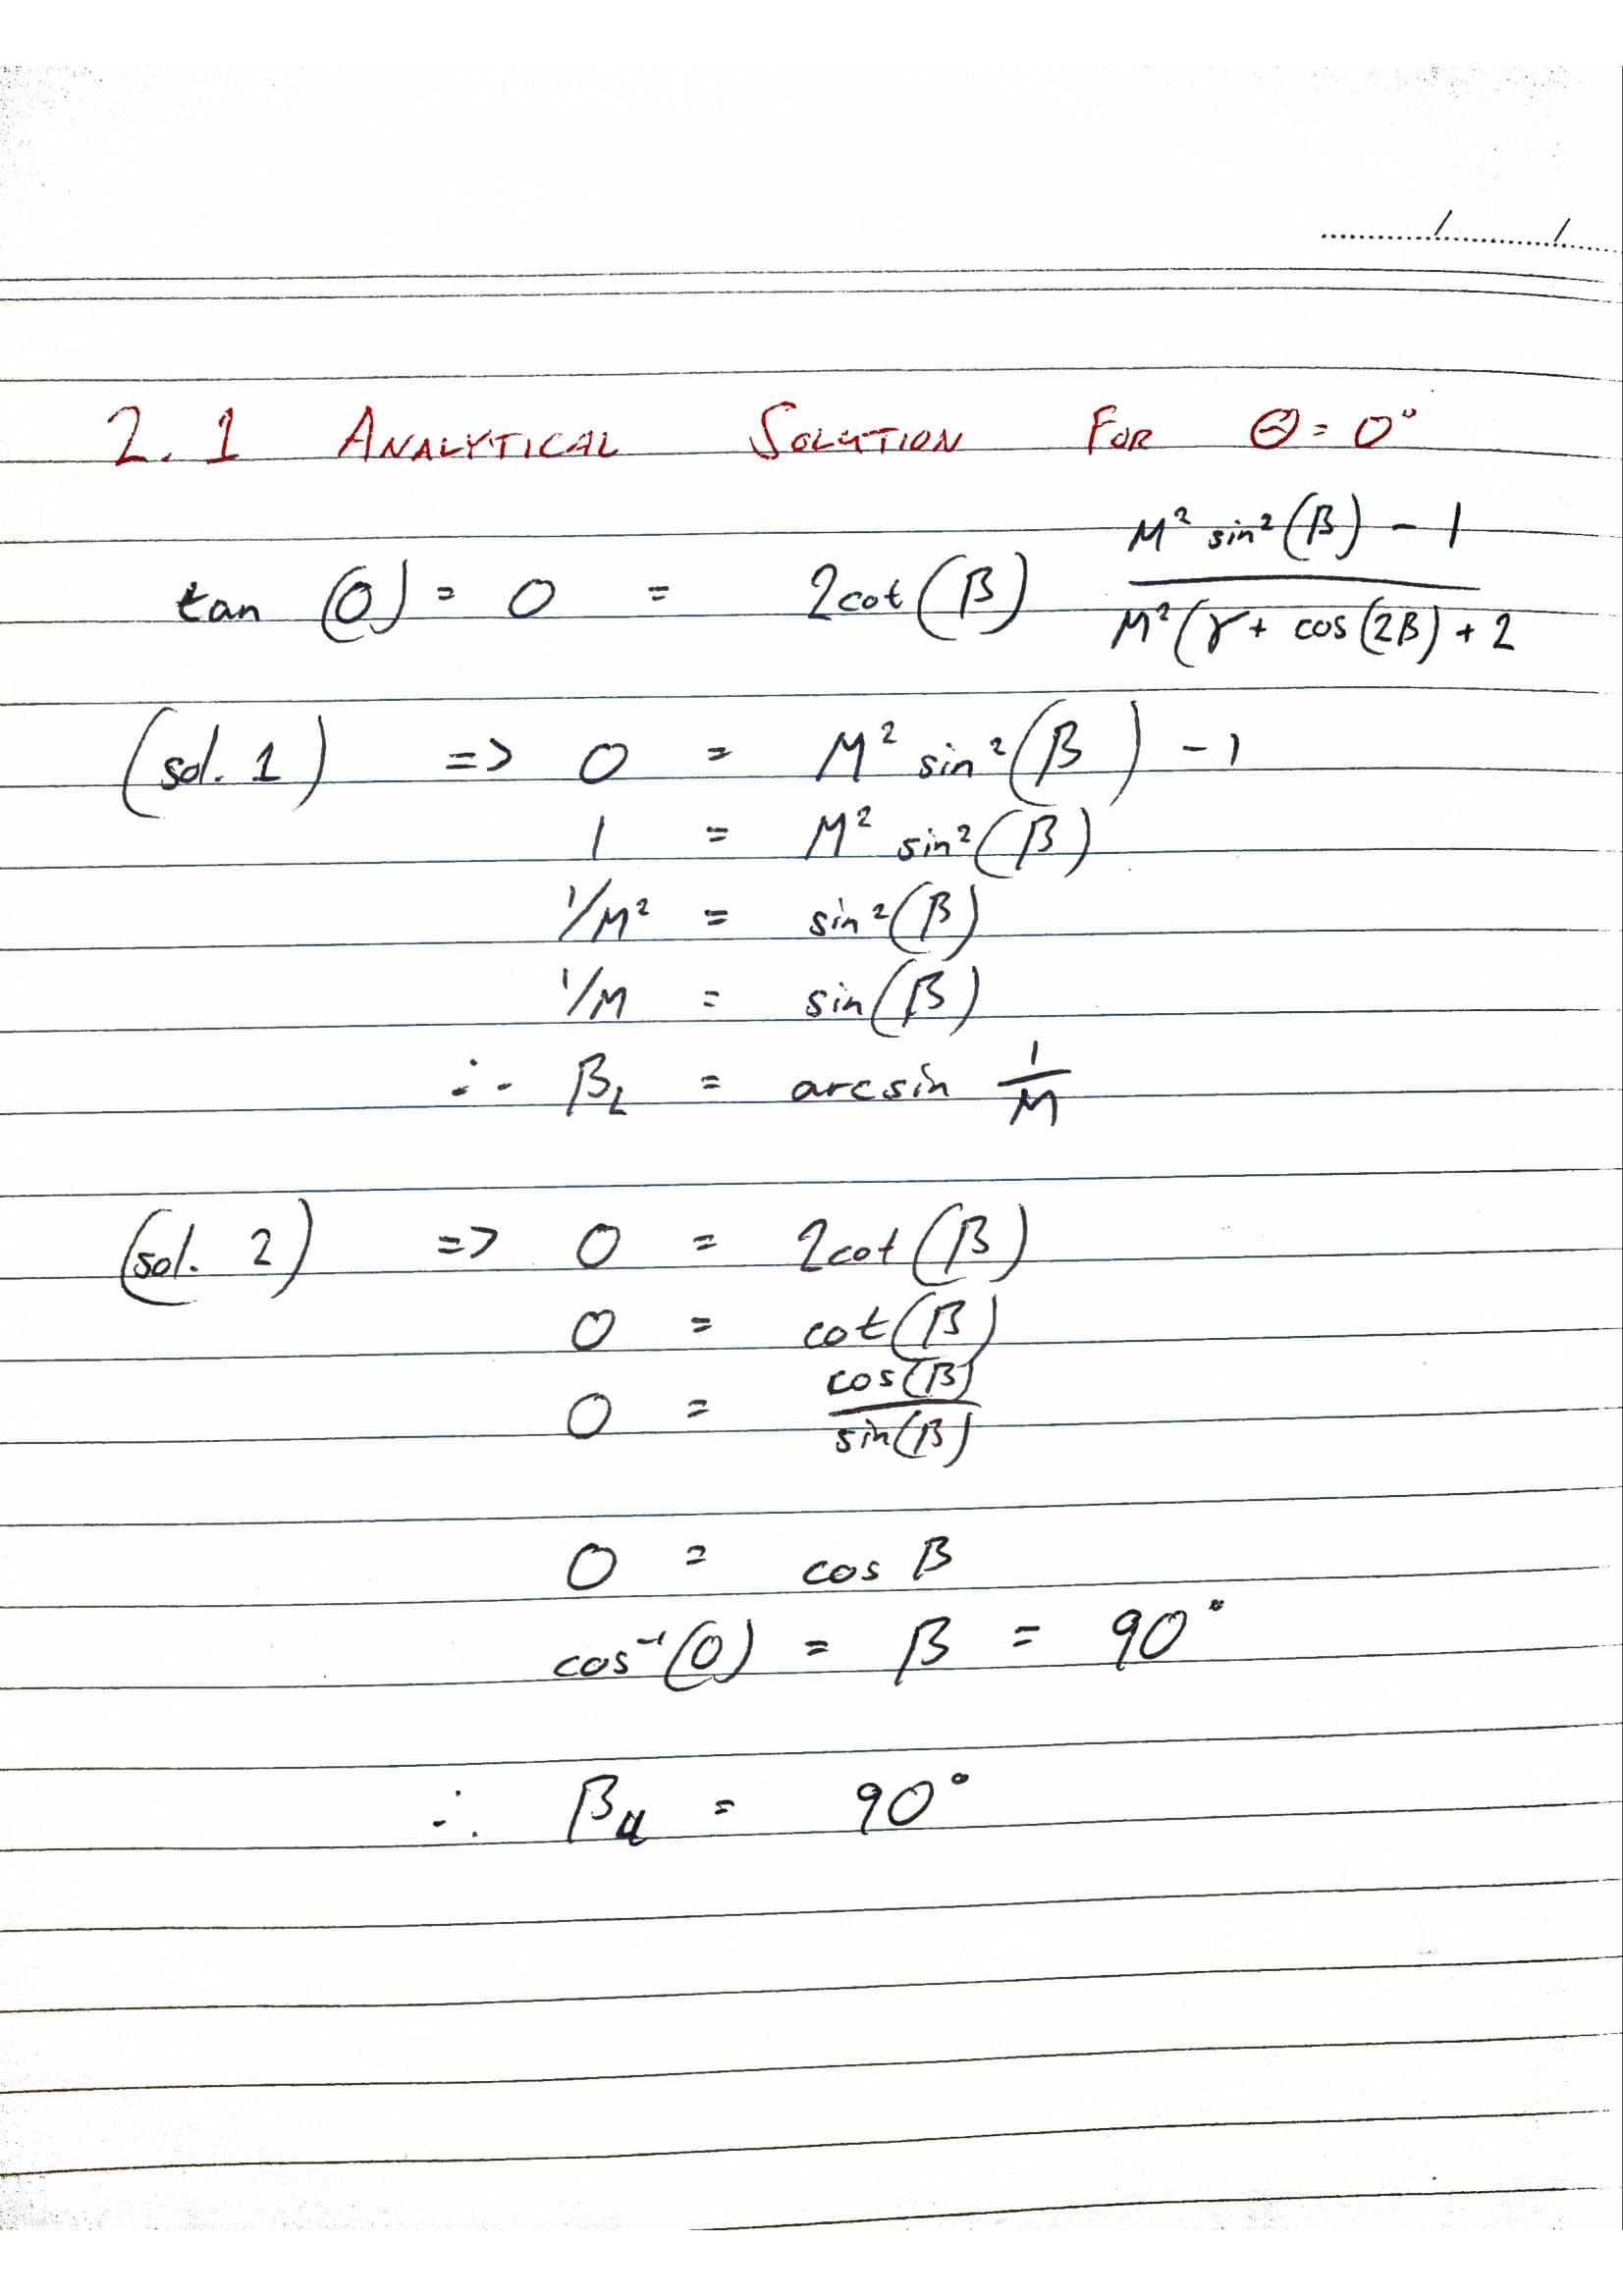 2.1 ANALYTICAL SOLUTION FOR Θ = 0°
tan (0) = 0 = 2cot(β) M² sin²(β) - 1 / M²(γ + cos(2β) + 2
(sol. 1) => 0 = M² sin²(β) - 1
1 = M² sin²(β)
1/M² = sin²(β)
1/M = sin(β)
∴ β_L = arcsin 1/M
(sol. 2) => 0 = 2cot(β)
0 = cot(β)
0 = cos(β) / sin(β)
0 = cos β
cos⁻¹(0) = β = 90°
∴ β_u = 90°